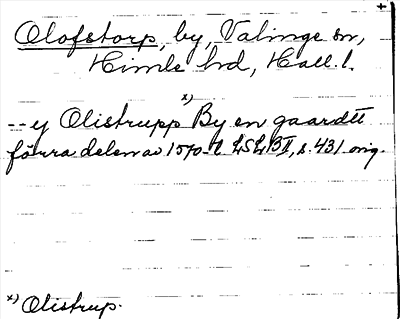 +
Olofstorp, by, Valinge sn,
Himle hd, Hall. l.
x)
-- y Olistrupp By en gaardtt
förra delen av 1570-t. LSLBII, s. 431 orig.
x) Olistrup.